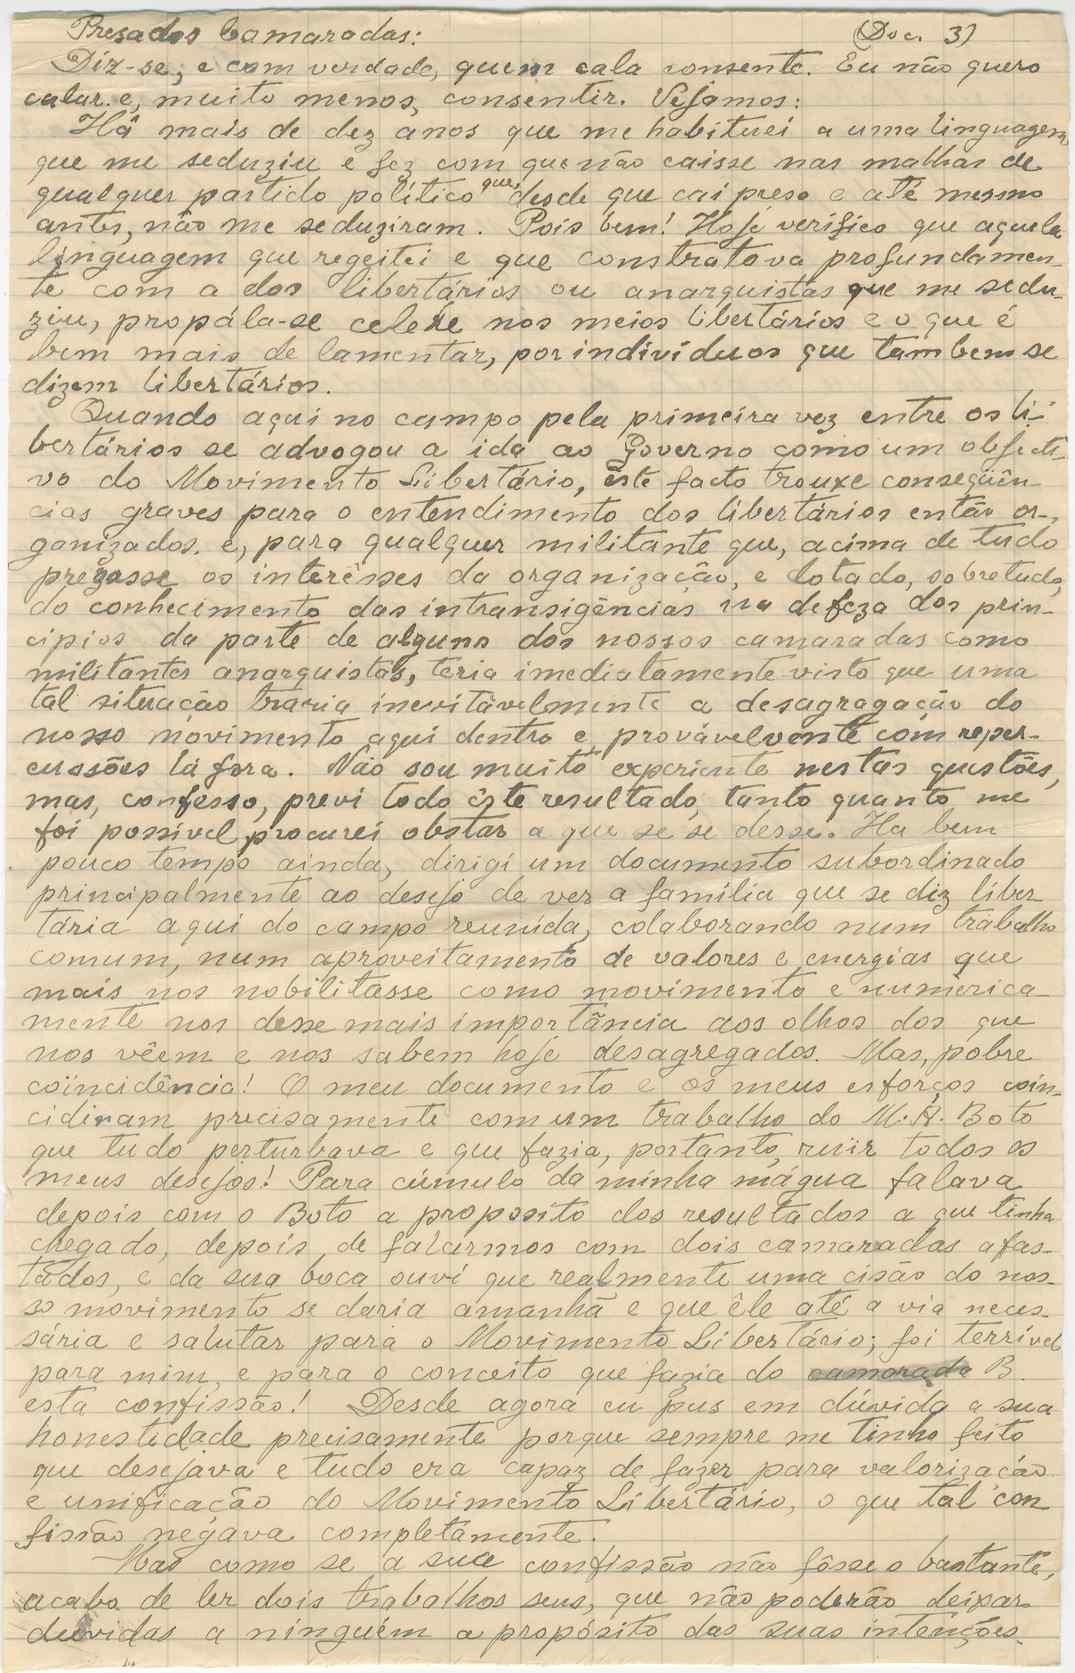 Presados Camaradas: (Doc. 3)
Diz-se, e com verdade, quem cala consente. Eu não quero
calar e, muito menos, consentir. Vejamos:
Há mais de dez anos que me habituei a uma linguagem,
que me seduziu e fez com que não caisse nas malhas de
qualquer partido político que, desde que caí preso e até mesmo
antes, não me seduziram. Pois bem! Hoje verifico que aquela
linguagem que regeitei e que constratava profundamen-
te com a dos libertários ou anarquistas que me sedu-
ziu, propála-se celere nos meios libertários e o que é
bem mais de lamentar, por indivíduos que tambem se
dizem libertários.
Quando aqui no campo pela primeira vez entre os li-
bertários se advogou a ida ao Governo como um objecti-
vo do Movimento Libertário, êste facto trouxe conseqüên-
cias graves para o entendimento dos libertários então or-
ganizados. e, para qualquer militante que, acima de tudo
presasse os interêsses da organização, e dotado, sobretudo,
do conhecimento das intransigências na defeza dos prin-
cipios da parte de alguns dos nossos camaradas como
militantes anarquistas, teria imediatamente visto que uma
tal situação traria inevitàvelmente a desagragação do
nosso movimento aqui dentro e, provávelmente com reper-
cussões lá fora. Não sou muito experiente nestas questões,
mas, confesso, previ todo êste resultado, tanto quanto me
foi possivel, procurei obstar a que se se desse. Ha bem
pouco tempo ainda, dirigi um documento subordinado
principalmente ao desejo de ver a família que se diz liber
tária aqui do campo reunida, colaborando num trabalho
comum, num aproveitamento de valores e energias que
mais nos nobilitasse como movimento e numérica-
mente nos desse mais importância aos olhos dos que
nos vêem e nos sabem hoje desagregados. Mas, pobre
coïncidência! O meu documento e os meus esforços coin-
cidiram precisamente com um trabalho do M. A. Boto
que tudo perturbava e que fazia, portanto, ruir todos os
meus desejos! Para cúmulo da minha mágua falava
depois com o Boto a proposito dos resultados a que tinha
chegado, depois de falarmos com dois camaradas afas-
tados, e da sua boca ouvi que realmente uma cisão do nos-
so movimento se daria amanhã e que êle até a via neces-
sária e salutar para o Movimento Libertário; foi terrível
para mim, e para o conceito que fazia do camarada B.
esta confissão! Desde agora eu pus em dúvida a sua
honestidade precisamente porque sempre me tinha feito
que desejava e tudo era capaz de fazer para valorização
e unificação do Movimento Libertário, o que tal con
fissão negava completamente.
Mas como se a sua confissão não fôsse o bastante,
acabo de ler dois trabalhos seus, que não poderão deixar
duvidas a ninguém a propósito das suas intenções.